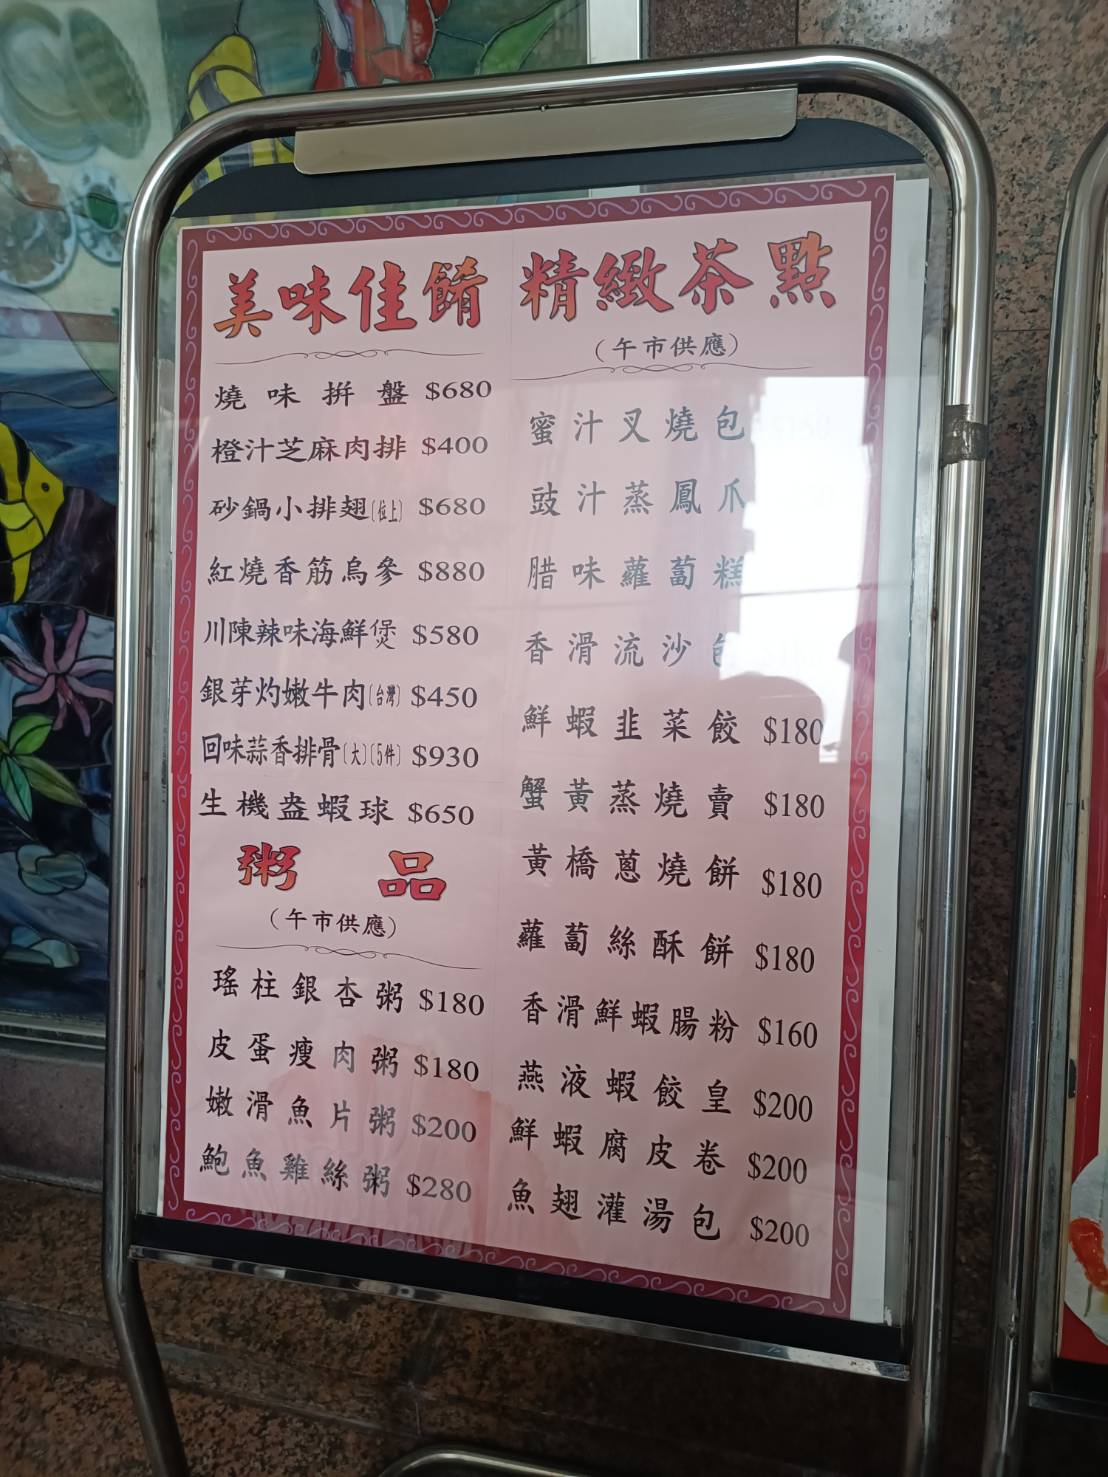 美味佳餚
燒味拼盤 $680
橙汁芝麻肉排 $400
砂鍋小排翅(位上) $680
紅燒香筋烏參 $880
川陳辣味海鮮煲 $580
銀芽灼嫩牛肉(台灣) $450
回味蒜香排骨(大)(5件) $930
生機盎蝦球 $650
粥品
(午市供應)
瑤柱銀杏粥 $180
皮蛋瘦肉粥 $180
嫩滑魚片粥 $200
鮑魚雞絲粥 $280
精緻茶點
(午市供應)
蜜汁叉燒包
豉汁蒸鳳爪
腊味蘿蔔糕
香滑流沙包
鮮蝦韭菜餃 $180
蟹黃蒸燒賣 $180
黃橋蔥燒餅 $180
蘿蔔絲酥餅 $180
香滑鮮蝦腸粉 $160
燕液蝦餃皇 $200
鮮蝦腐皮卷 $200
魚翅灌湯包 $200